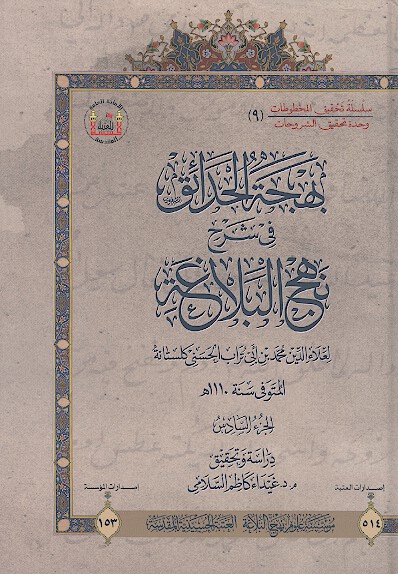 سلسلة تحقيق المخطوطات
وحدة تحقيق الشروحات (٩)
بهجة الحدائق
في شرح
نهج البلاغة
لعلاء الدين محمد بن أبي تراب الحسني كلستانة
المتوفى سنة ١١١٠هـ
الجزء السادس
دراسة وتحقيق
م. د. غيداء كاظم السلامي
إصدارات العتبة
٥١٤
إصدارات المؤسسة
١٥٣
مؤسسة علوم نهج البلاغة العتبة الحسينية المقدسة